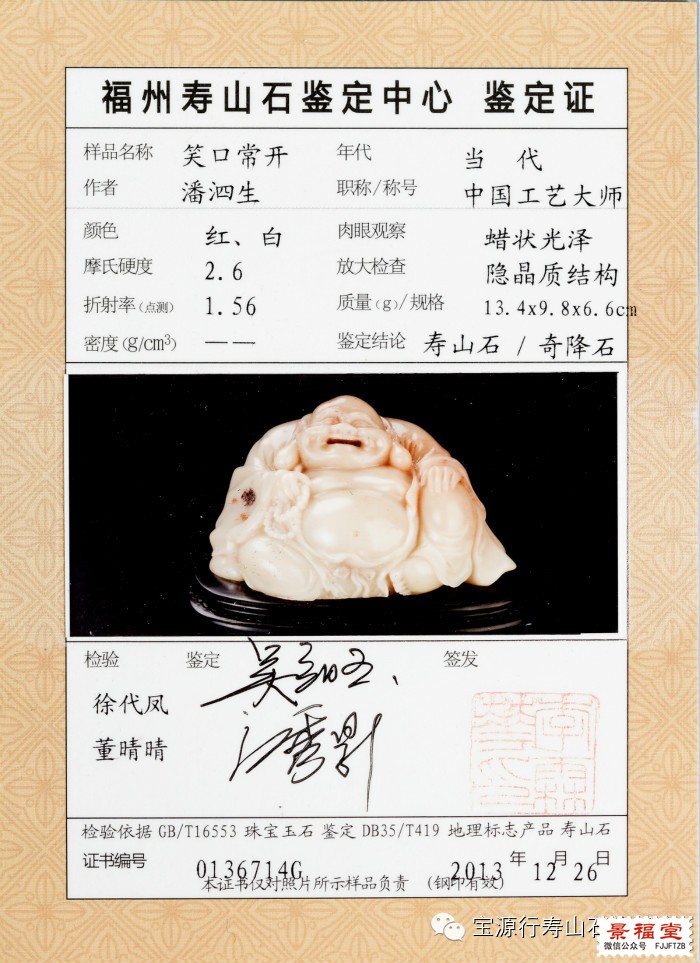 福州寿山石鉴定中心 鉴定证
样品名称 笑口常开 年代 当 代
作者 潘泗生 职称/称号 中国工艺大师
颜色 红、白 肉眼观察 蜡状光泽
摩氏硬度 2.6 放大检查 隐晶质结构
折射率(点测) 1.56 质量(g)/规格 13.4x9.8x6.6cm
密度(g/cm³) —— 鉴定结论 寿山石 / 奇降石
检验 鉴定 签发
徐代凤
董晴晴
检验依据 GB/T16553 珠宝玉石 鉴定 DB35/T419 地理标志产品 寿山石
证书编号 0136714G 2013 年 12 月 26 日
本证书仅对照片所示样品负责 (钢印有效)
宝源行寿山石
景福堂
微信公众号 FJJFTZB